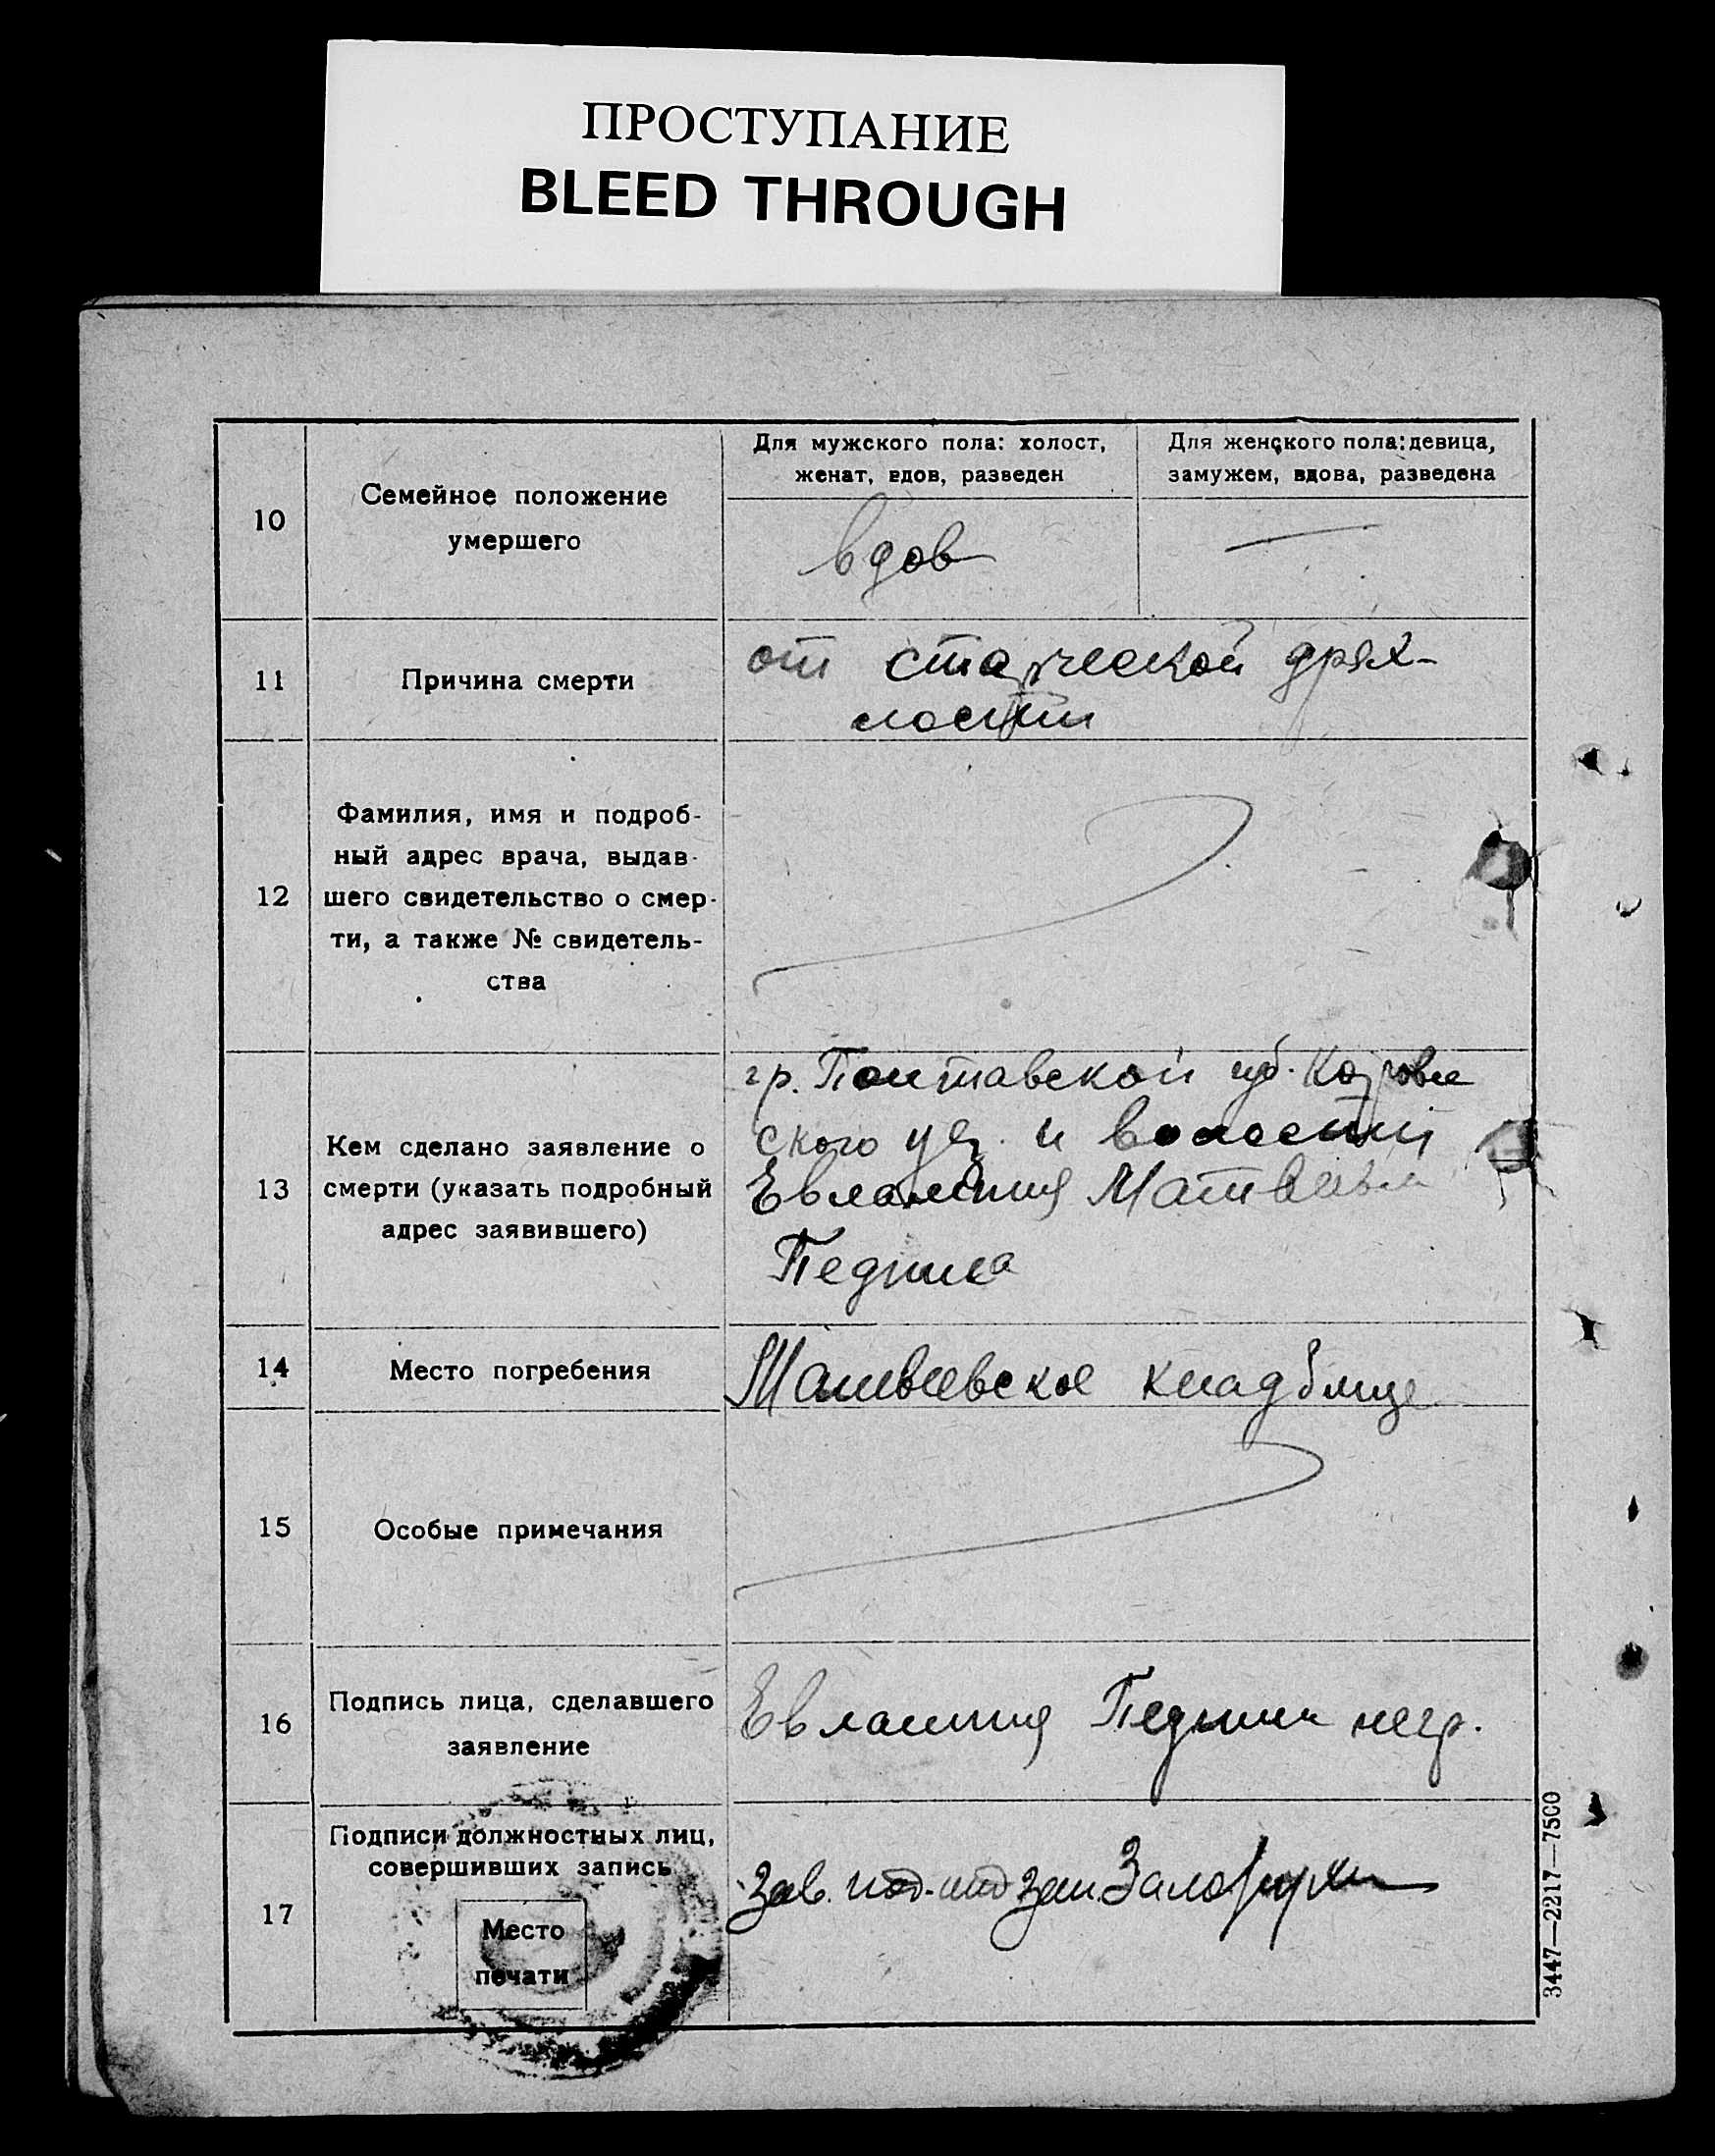 ПРОСТУПАНИЕ
BLEED THROUGH
10
Семейное положение
умершего
Для мужского пола: холост,
женат, вдов, разведен
Для женского пола: девица,
замужем, вдова, разведена
вдов
—
11
Причина смерти
от старческой дрях-
лости
12
Фамилия, имя и подроб-
ный адрес врача, выдав-
шего свидетельство о смер-
ти, а также № свидетель-
ства
13
Кем сделано заявление о
смерти (указать подробный
адрес заявившего)
гр. Полтавской губ.
ского уез. и волости
Евлампия
14
Место погребения
Матвеевское кладбище
15
Особые примечания
16
Подпись лица, сделавшего
заявление
Евлампия негр.
17
Подписи должностных лиц,
совершивших запись
Место
печати
Зав.
3447—2217—7500